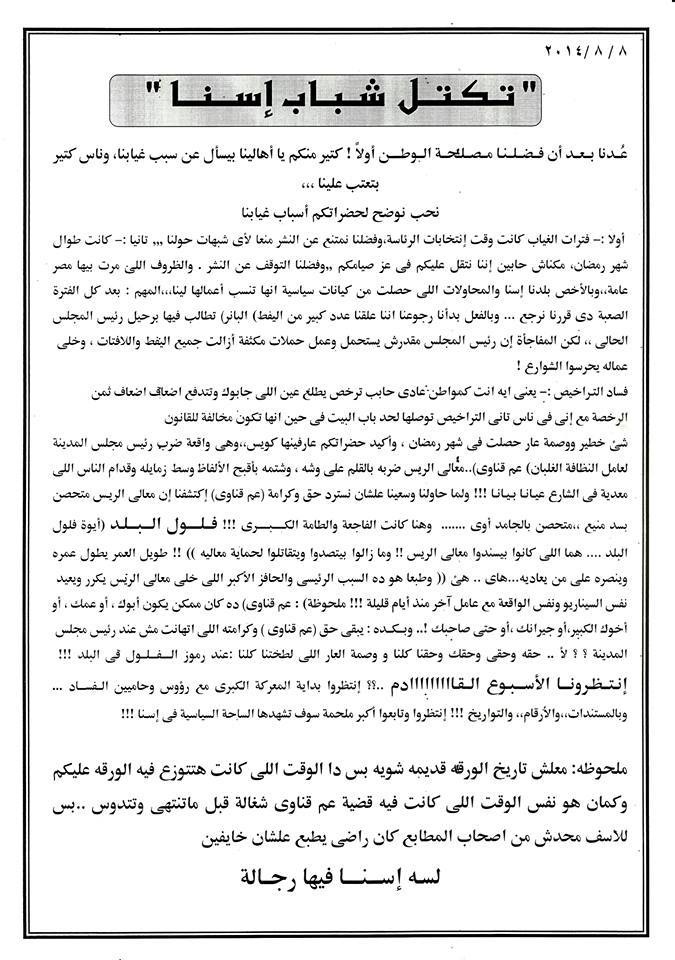 ٢٠١٤/٨/٨
" تـكـتـل شـبـاب إسـنـا "
عُـدنا بـعـد أن فـضـلـنـا مـصـلـحـة الـوطـن أولاً ! كتير منكم يا أهالينا بيسأل عن سبب غيابنا، وناس كتير
بتعتب علينا ،،،
نحب نوضح لحضراتكم أسباب غيابنا
أولا :– فترات الغياب كانت وقت إنتخابات الرئاسة،وفضلنا نمتنع عن النشر منعا لأى شبهات حولنا ,,, تانيا :– كانت طوال
شهر رمضان، مكناش حابين إننا نتقل عليكم فى عز صيامكم ,,وفضلنا التوقف عن النشر . والظروف اللئ مرت بيها مصر
عامة،،وبالأخص بلدنا إسنا والمحاولات اللى حصلت من كيانات سياسية انها تنسب أعمالها لينا،،،المهم : بعد كل الفترة
الصعبة دى قررنا نرجع ... وبالفعل بدأنا رجوعنا اننا علقنا عدد كبير من اليفط( البانر) تطالب فيها برحيل رئيس المجلس
الحالى ،، لكن المفاجأة إن رئيس المجلس مقدرش يستحمل وعمل حملات مكثفة أزالت جميع اليفط واللافتات ، وخلى
عماله يحرسوا الشوارع !
فساد التراخيص :– يعنى ايه انت كمواطن عادى حابب ترخص يطلع عين اللى جابوك وتتدفع اضعاف اضعاف ثمن
الرخصة مع إنى فى ناس تانى التراخيص توصلها لحد باب البيت فى حين انها تكون مخالفة للقانون
شئ خطير ووصمة عار حصلت فى شهر رمضان ، وأكيد حضراتكم عارفينها كويس،،وهى واقعة ضرب رئيس مجلس المدينة
لعامل النظافة الغلبان( عم قناوى)..معالى الريس ضربه بالقلم على وشه ، وشتمه بأقبح الألفاظ وسط زمايله وقدام الناس اللى
معدية فى الشارع عيانا بيانا !!! ولما حاولنا وسعينا علشان نسترد حق وكرامة (عم قناوى) إكتشفنا إن معالى الريس متحصن
بسد منيع ،،متحصن بالجامد أوى ....... وهنا كانت الفاجعة والطامة الكـبـرى !!! فـلـول الـبـلـد (أيوة فلول
البلد .... هما اللى كانوا بيسندوا معالى الريس !! وما زالوا بيتصدوا ويتقاتلوا لحماية معاليه )) !! طويل العمر يطول عمره
وينصره على من يعاديه...هاى .. هئ (( وطبعا هو ده السبب الرئيسى والحافز الأكبر اللى خلى معالى الريس يكرر ويعيد
نفس السيناريو ونفس الواقعة مع عامل آخر منذ أيام قليلة !!! ملحوظة) : عم قناوى) ده كان ممكن يكون أبوك ، أو عمك ، أو
أخوك الكبير،أو جيرانك ،أو حتى صاحبك !.. وبـكـده : يبقى حق (عم قناوى ) وكرامته اللى اتهانت مش عند رئيس مجلس
المدينة ؟ ؟ لأ .. حقه وحقى وحقك وحقنا كلنا و وصمة العار اللى لطختنا كلنا :عند رموز الـفـلـول فى البلد !!!
إنـتـظـرونـا الأسـبـوع الـقـااااااااادم ..؟؟ إنتظروا بداية المعركة الكبرى مع رؤوس وحاميين الـفـسـاد ...
وبالمستندات،،والأرقام،، والتواريخ !!! إنتظروا وتابعوا أكبر ملحمة سوف تشهدها الساحة السياسية فى إسنا !!!
ملحوظه: معلش تاريخ الورقه قديمه شويه بس دا الوقت اللى كانت هتتوزع فيه الورقه عليكم
وكمان هو نفس الوقت اللى كانت فيه قضية عم قناوى شغالة قبل ماتنتهى وتتدوس ..بس
للاسف محدش من اصحاب المطابع كان راضى يطبع علشان خايفين
لسه إسـنـا فيها رجـالة